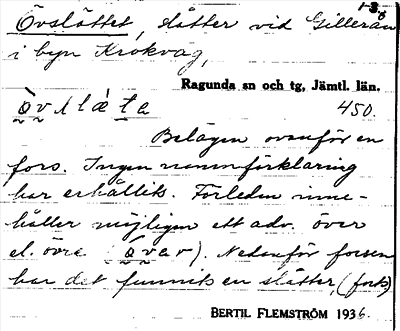 1-3
Övslåttet, slåtter vid Gillerån
i byn Krokvåg,
Ragunda sn och tg, Jämtl. län.
450.
Belägen ovanför en
fors. Ingen namnförklaring
har erhållits. Förleden inne-
håller möjligen ett adv. över
el. övre (òvar). Nedanför forsen
har det funnits en slåtter, (forts)
BERTIL FLEMSTRÖM 1936.